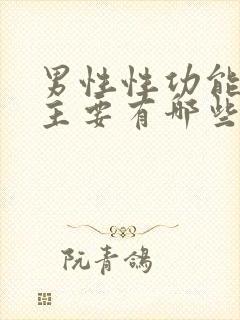 男性性功能
主要有哪些
阮青鸽